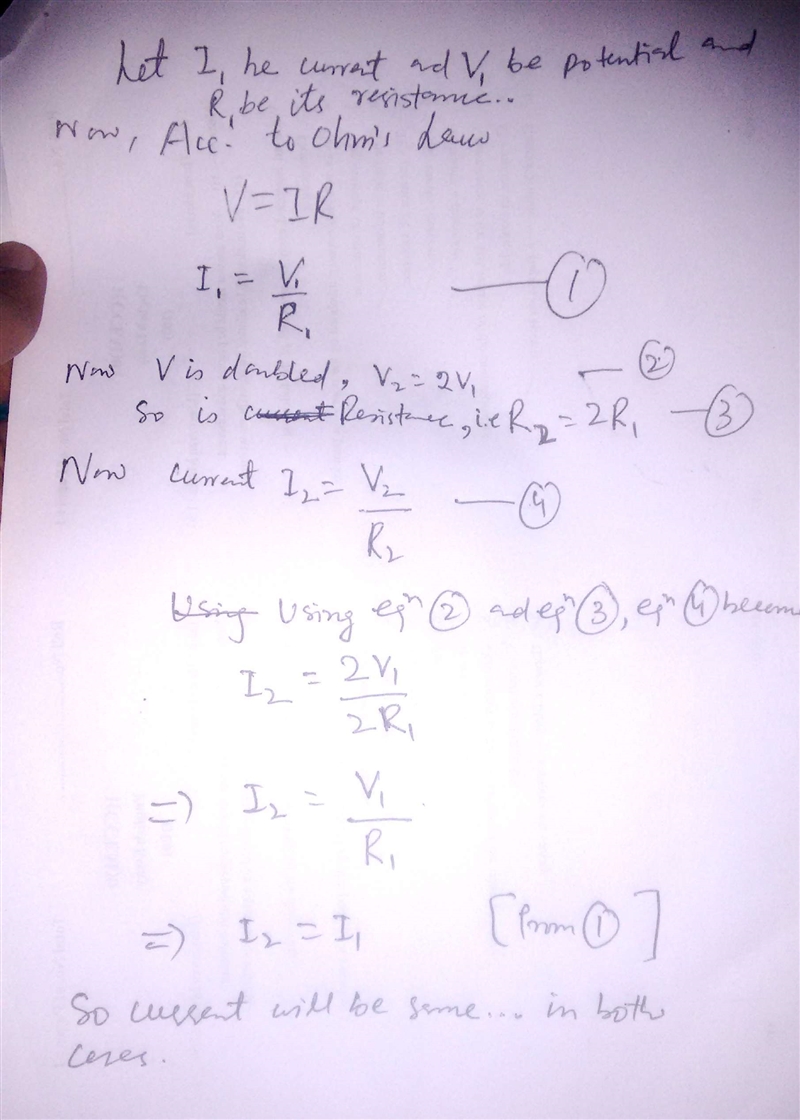 Let I₁ be current ad V₁ be potential and
R₁ be its resistance..
Now, Acc. to Ohm's Law
V = IR
I₁ = V₁/R₁ —— ①
Now V is doubled, V₂ = 2V₁ — ②
So is current Resistance, i.e R₂ = 2R₁ — ③
Now current I₂ = V₂/R₂ — ④
Using Using eqⁿ ② ad eqⁿ ③, eqⁿ ④ become
I₂ = 2V₁/2R₁
=> I₂ = V₁/R₁
=> I₂ = I₁ [From ①]
So current will be same... in both
cases.